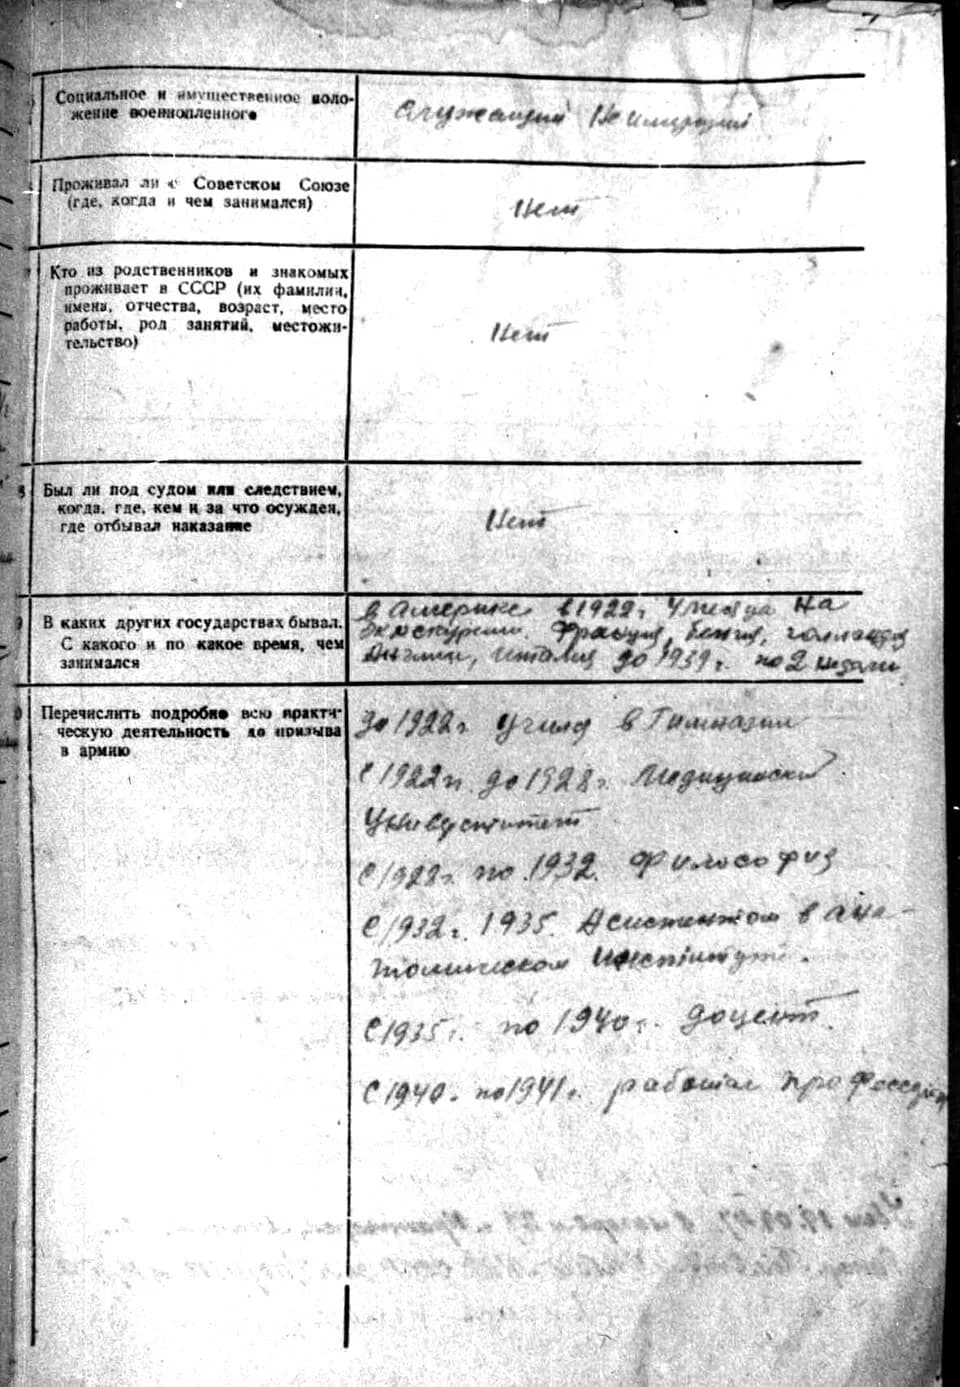 Социальное и имущественное поло-
жение военнопленного
Служащий Неимущий
Проживал ли в Советском Союзе
(где, когда и чем занимался)
Нет
Кто из родственников и знакомых
проживает в СССР (их фамилии,
имена, отчества, возраст, место
работы, род занятий, местожи-
тельство)
Нет
Был ли под судом или следствием,
когда, где, кем и за что осужден,
где отбывал наказание
Нет
В каких других государствах бывал.
С какого и по какое время, чем
занимался
в Америке в 1922 г. 4 месяца на
экскурсии. Франция, Бельгия, Голландия
Англии, Италия до 1939 г. по 2 недели
Перечислить подробно всю практи-
ческую деятельность до призыва
в армию
До 1922 г учился в Гимназии
С 1922 г. до 1928 г. Медицинский
Университет
С 1928 г. по 1932. Философия
С 1932 г. 1935. Асистентом в ана-
томическом Институте.
С 1935 г. по 1940 г. доцент.
С 1940. по 1941 г. работал профессором